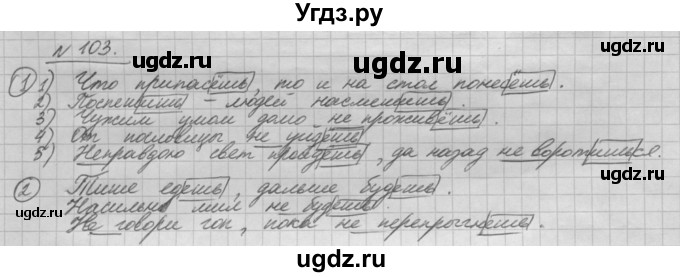 Угдз.ру
N 103.
① 1) Что припасёшь, то и на стол понесёшь.
2) Поспешишь – людей насмешишь.
3) Чужим умом долго не проживёшь.
4) От пословицы не уйдёшь.
5) Неправдою свет пройдёшь, да назад не воротишься.
② Тише едешь, дальше будешь.
Насильно мил не будешь.
Не говори гоп, пока не перепрыгнешь.
ugdz.ru ugdz.ru
ugdz.ru ugdz.ru ugdz.ru
ugdz.ru ugdz.ru
ugdz.ru ugdz.ru ugdz.ru